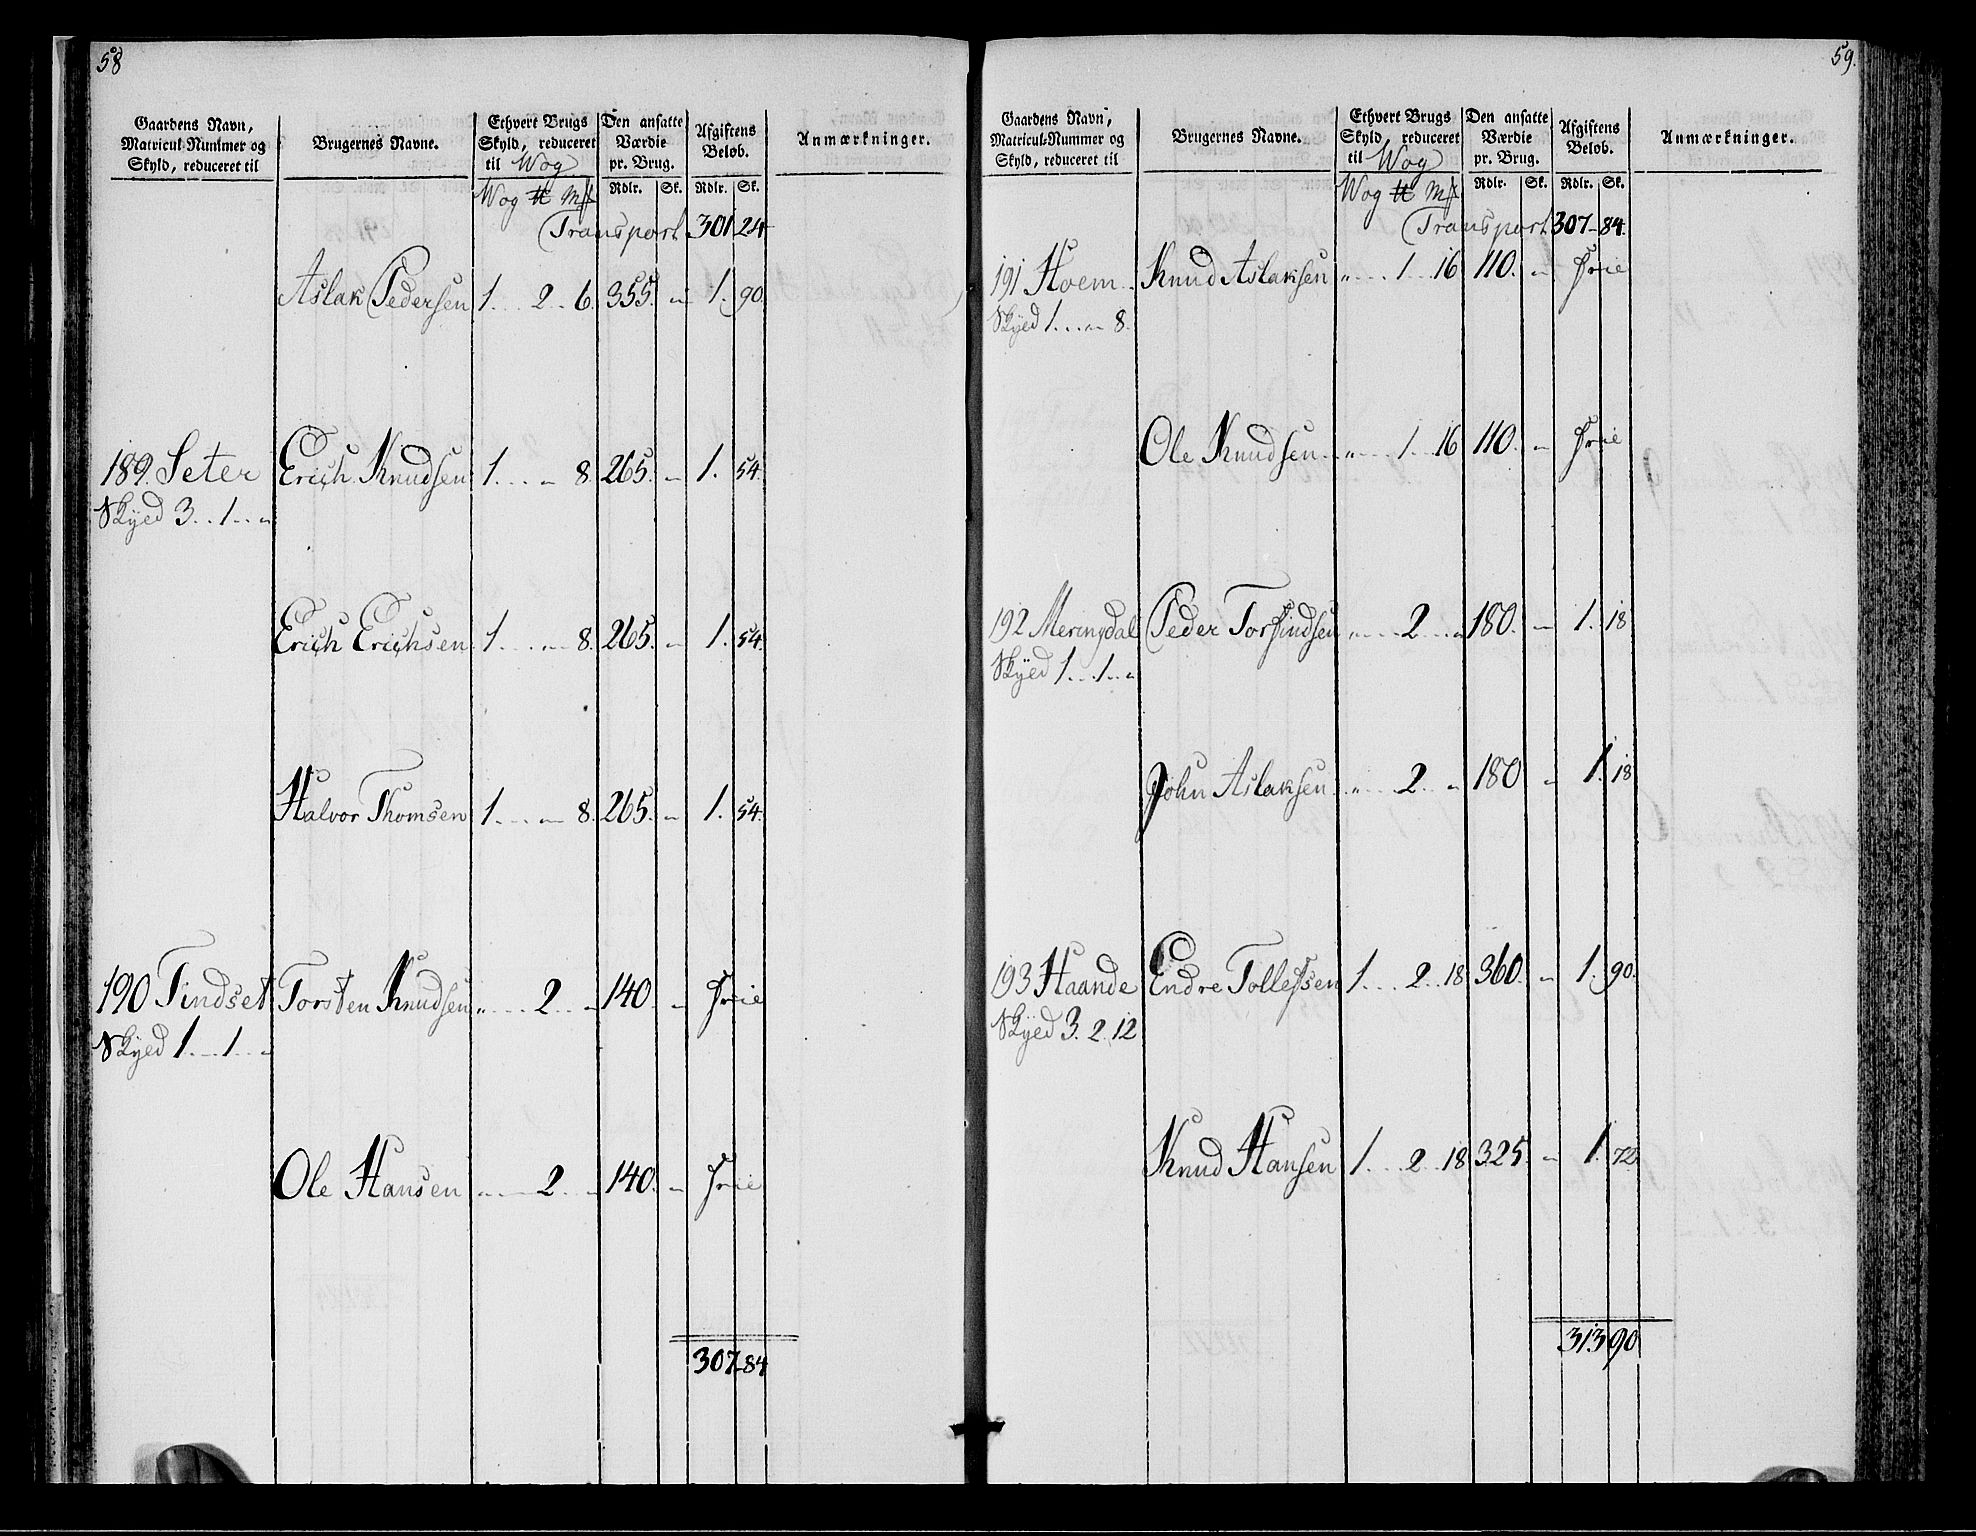 58
Gaardens Navn, Matricul-Nummer og Skyld, reduceret til
Brugernes Navne.
Ethvert Brugs Skyld, reduceret til Wog
Den ansatte Værdie pr. Brug.
Afgiftens Beløb.
Anmærkninger.
Wog ℔ Mk Rdlr. Sk. Rdlr. Sk.
Transport 301 24
Aslak Pedersen 1 . . . 2 . . 6. 355. „ 1. 90.
189. Seter Erich Knudsen 1. . . . „ 8. 265. „ 1. 54.
Skyed 3 . . 1 . . „
Erich Erichsen 1 . . . . „ 8. 265. „ 1. 54.
Halvor Thomsen 1. . . . „ 8. 265. „ 1. 54.
190 Tindset Torsten Knudsen „ . . . . 2 . . „ 140 „ Frie
Skyed 1. . . 1 . . „
Ole Hansen „ . . . . 2 . . „ 140. „ Frie
307 84
59.
Gaardens Navn, Matricul-Nummer og Skyld, reduceret til
Brugernes Navne.
Ethvert Brugs Skyld, reduceret til Wog
Den ansatte Værdie pr. Brug.
Afgiftens Beløb.
Anmærkninger.
Wog ℔ Mk Rdlr. Sk. Rdlr. Sk.
Transport 307 84.
191 Hoem Knud Aslaksen „ . . . . 1 . . 16 110. „ Frie
Skyed 1. . . „ 8.
Ole Knudsen „ . . . 1 . . 16 110. „ Frie
192 Meringdal Peder Torfindsen „ . . . . 2 . . . „ 180. „ 1. 18
Skyed 1 . . . 1 . . „
John Aslaksen „ . . . 2 . . „ 180 „ 1. 18
193 Haande Endre Tollefsen 1 . . . . 2 . . 18 360. „ 1. 90.
Skyed 3. 2. 12
Knud Hansen 1 . . . . 2 . . 18 325. „ 1. 72
313 90